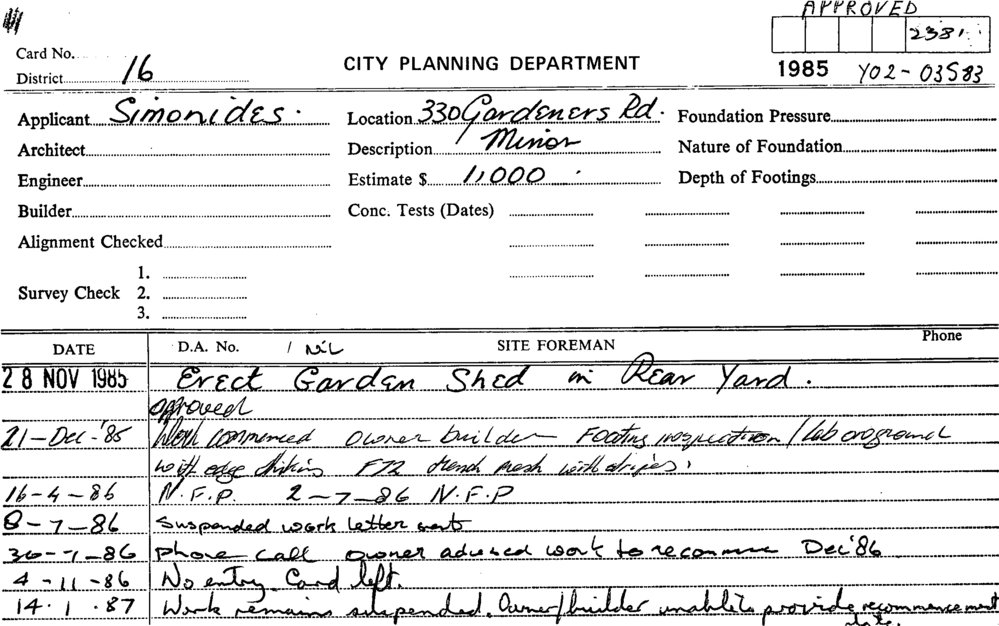 APPROVED
2381
Card No.
District 16
CITY PLANNING DEPARTMENT
1985 Y02-03583
Applicant Simonides.
Location 330 Gardeners Rd.
Foundation Pressure
Architect
Description Minor
Nature of Foundation
Engineer
Estimate $ 1,000
Depth of Footings
Builder
Conc. Tests (Dates)
Alignment Checked
1.
Survey Check 2.
3.
DATE D.A. No. / NIL SITE FOREMAN Phone
28 NOV 1985 Erect Garden Shed in Rear Yard.
approved
21-Dec-'85 Work commenced owner builder Footing inspection / slab onground
with edge F72 trench mesh with
16-4-86 N.F.P. 2-7-86 N.F.P
8-7-86 Suspended work letter sent
30-7-86 phone call owner advised work to recommence Dec '86
4-11-86 No entry Card left.
14.1.87 Work remains suspended. Owner/builder unable to provide recommencement
date.